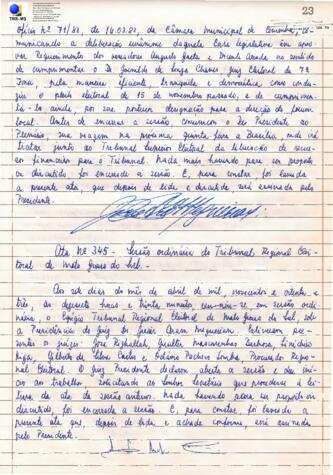 TRE-MS
23
Ofício nº 71/83, de 14.03.83, da Câmara Municipal de Corumbá, co-
municando a deliberação unânime daquela Casa legislativa em apro-
var Requerimento dos vereadores Augusto e Vicente no sentido
de cumprimentar o Dr. de Souza Chaves Juiz Eleitoral da 7ª
Zona, pela maneira eficiente, tranquila e democrática, como condu-
ziu o pleito eleitoral de 15 de novembro passado, e de cumprimen-
tá-lo ainda por sua designação para a direção do Forum
local. Antes de encerrar a sessão comunicou o Sr. Presidente ao
Plenário, sua viagem na próxima quinta feira a Brasília, onde irá
tratar junto ao Tribunal Superior Eleitoral da liberação de recur-
sos financeiros para o Tribunal. Nada mais havendo para ser proposto
ou discutido foi encerrada a sessão. E, para constar foi lavrada
a presente ata, que depois de lida e discutida será assinada pelo
Presidente.
Ata Nº 345 - Sessão ordinária do Tribunal Regional Elei-
toral de Mato Grosso do Sul.
Aos seis dias do mês de abril de mil, novecentos e oitenta e
três, às dezessete horas e trinta minutos, reuniu-se em sessão ordi-
nária, o Egrégio Tribunal Regional Eleitoral de Mato Grosso do Sul, sob
a Presidência do Juiz Dr. Jesus. Estiveram pre-
sentes os juízes: José Rizkallah, Barbosa,
Gilberto da Silva Castro e Pacheco Procurador Regio-
nal Eleitoral. O Juiz Presidente declarou aberta a sessão e deu iní-
cio aos trabalhos solicitando ao Senhor Secretário que procedesse à lei-
tura da ata da sessão anterior. Nada havendo para ser proposto ou
discutido, foi encerrada a sessão. E, para constar foi lavrada a
presente ata que, depois de lida e achada conforme, será assinada
pelo Presidente.